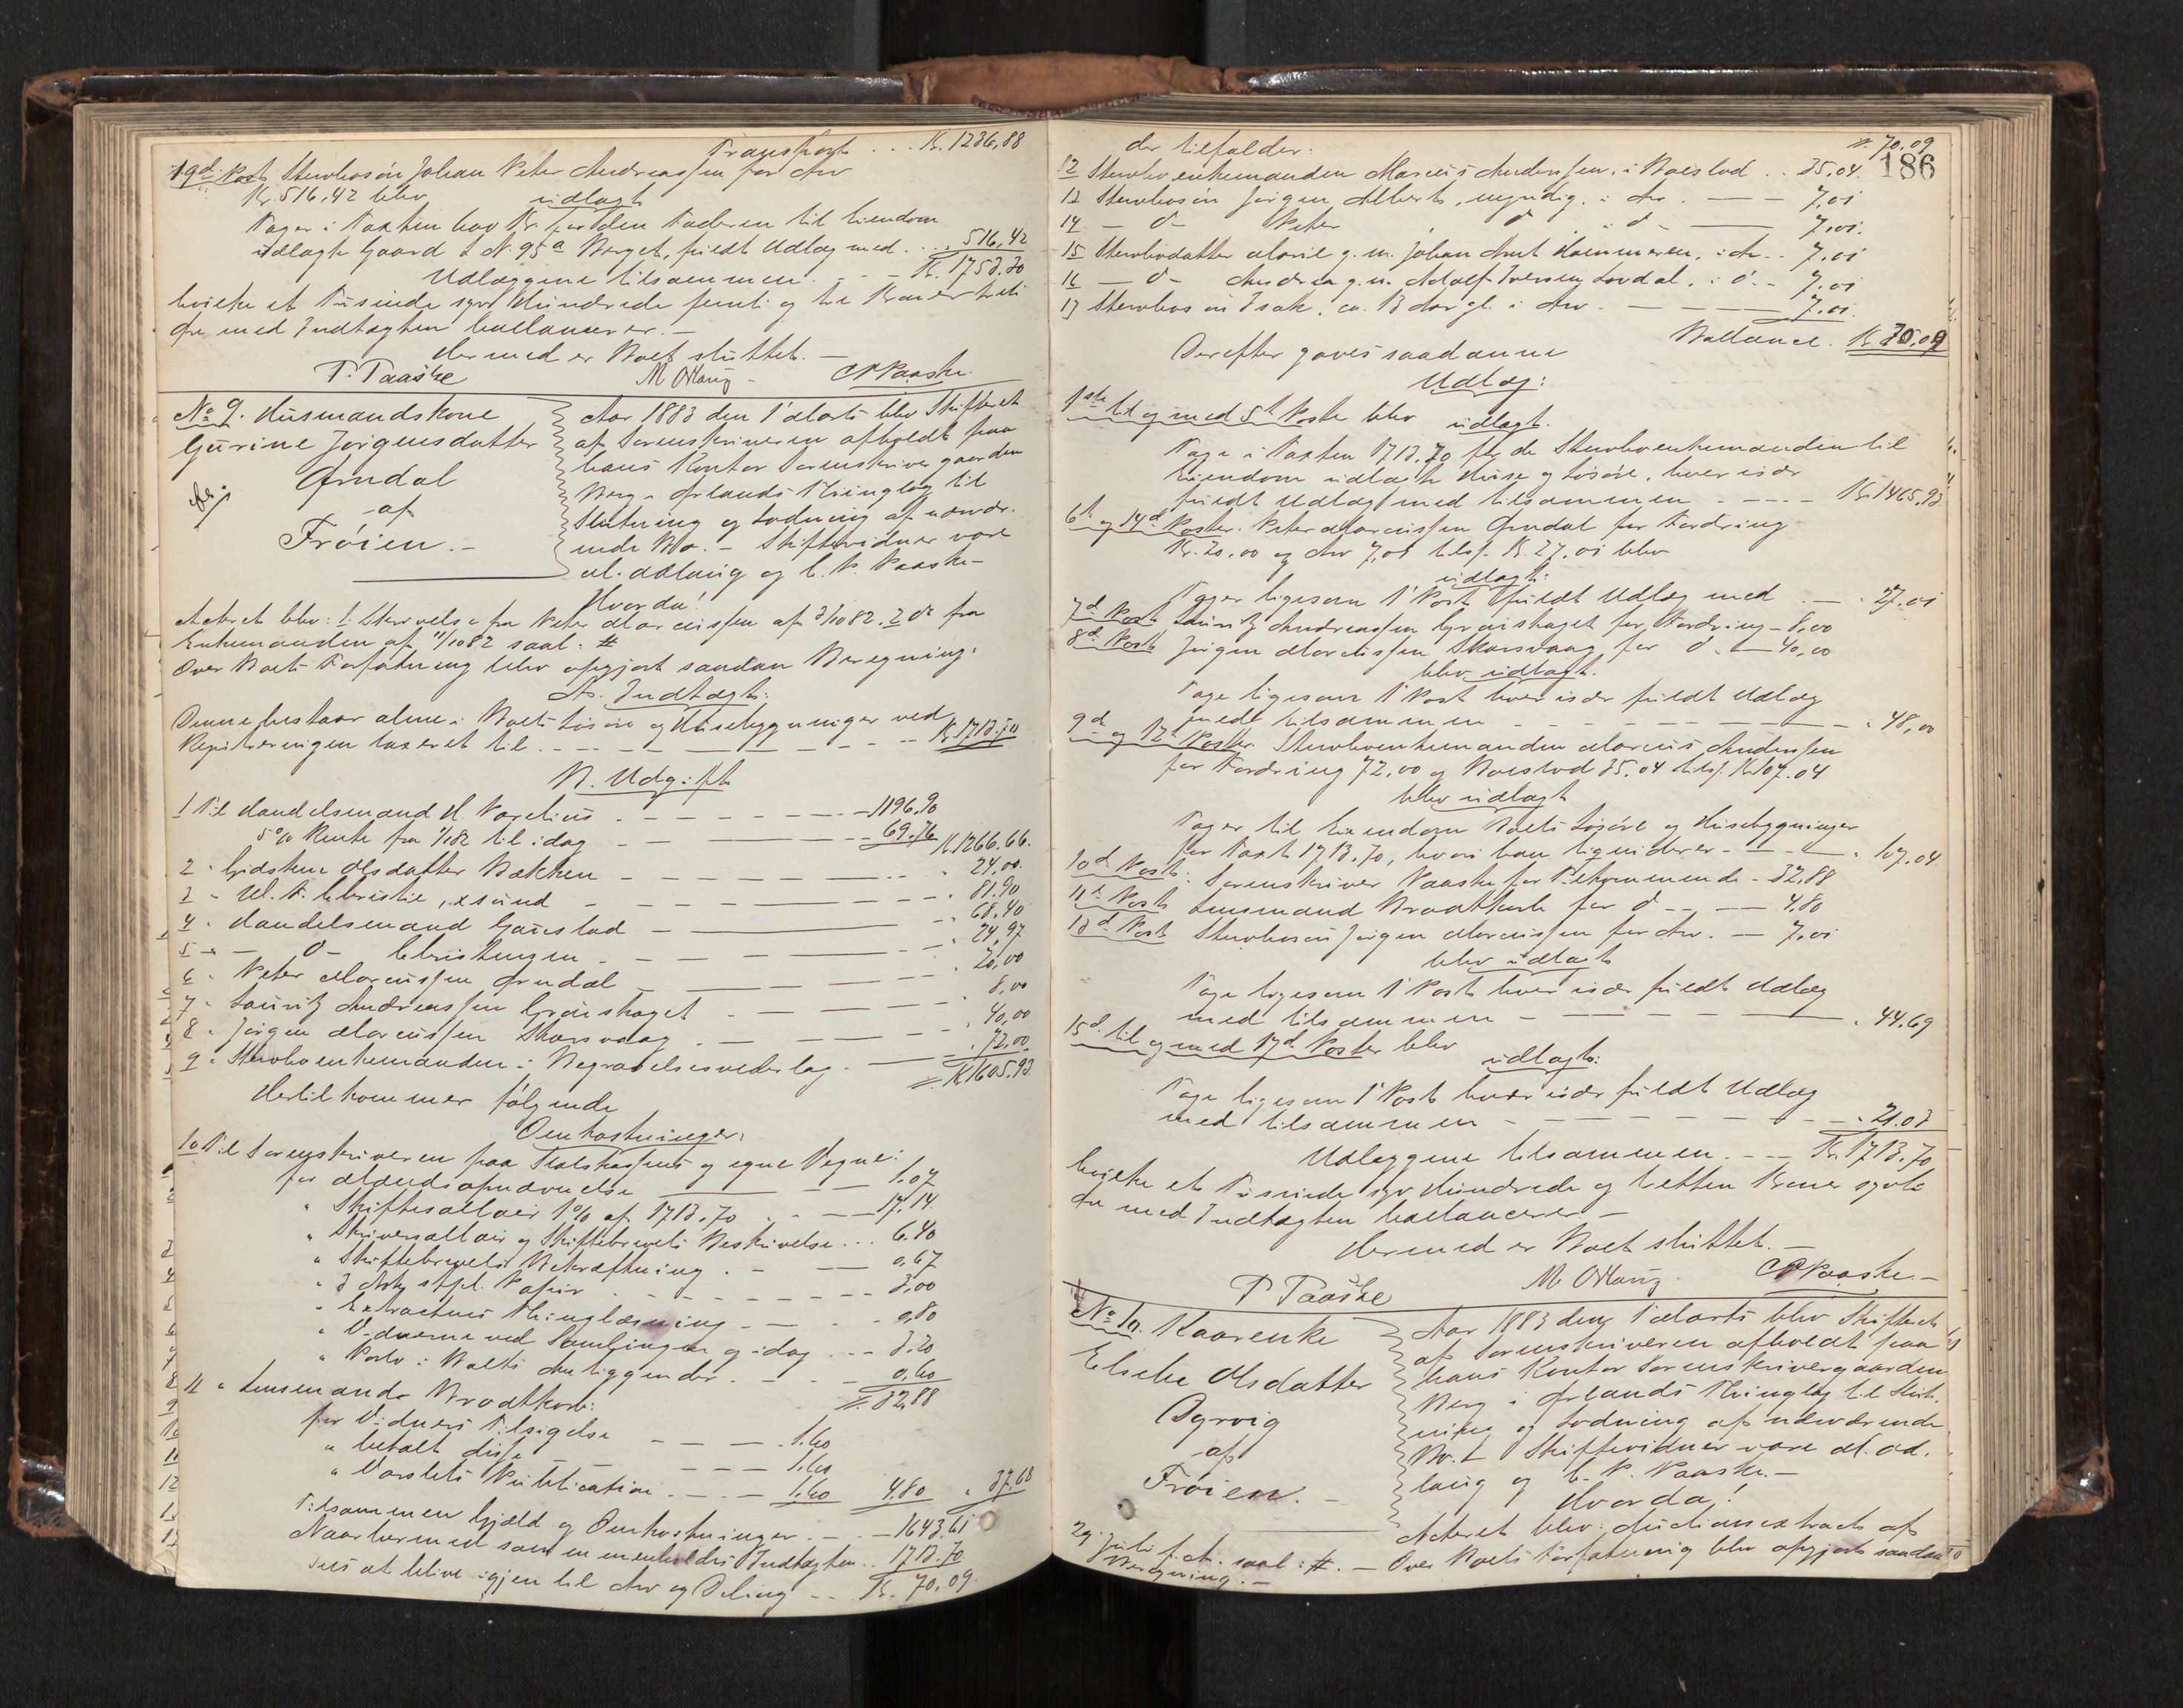 Transport . . . Kr. 1236,88
19de Post Stervbosøn Johan Peter Andreassen for Arv
Kr. 516,42 blev
udlagt
Tager i Taxten hos Kr for den Faderen til Eiendom
udlagte Gaard L N. 95a Berget, fuldt Udlæg med . . . 516,42
Udlæggene tilsammen . . - - Kr. 1753.30
hvilke et Tusinde syv Hundrede femti og tre Kroner treti
Øre med Indtægten ballancerer. -
Hermed er Boet sluttet. -
P. Paaske M OHaug - C P Paaske.
No 9. Husmandskone
Gurine Jørgensdatter
Ørndal
af
Frøien. -
Aar 1883 den 1 Marts blev Skifteret
af Sorenskriveren afholdt paa
hans Kontor Sorenskrivergaarden
Berg i Ørlands Thinglag til
Slutning og Lodning af nærvær-
ende Bo. - Skiftevidner vare
M. OHaug og C. P. Paaske -
Hvorda!
Acteret blev: 1. Skrivelse fra Peter Marcussen af 3/10 82. 2 do fra
Enkemanden af 11/10 82 saal: #
Over Boets Forfatning blev opgjort saadan Beregning:
A. Indtægt:
Denne bestaar alene i Boets Løsøre og Husebygninger ved
Registreringen taxeret til . . - - - - - - Kr 1713.70
B. Udgift
1 Til Handelsmand H. Parelius . - - - - - 1196.90
5 % Rente fra 1/1 82 til idag - - - - 69.76 Kr 1266.66.
2 " Gidsken Olsdatter Bakken - - - - - " 24,00.
3 " W. F. Christie, x sund - - - - - " 81,90
4 " Handelsmand Gaustad - - - - " 68,40
5 " - d - Christensen - - - - - " 24,97
6 " Peter Marcussen Ørndal - - - - " 20,00
7 " Lauritz Andreassen Grøiskaget - - - - " 8,00
8 " Jørgen Marcussen Skarsvaag . - - - " 40,00
9 " Stervboenkemanden i Begravelsesvederlag . - - " 72,00.
# Kr 1605.93.
Hertil kommer følgende
Omkostninger:
10 Til Sorenskriveren paa Statskassens og egne Vegne:
for Mændsopnævnelse - - 1.07
" Skiftesallair 1% af 1713.70 . . - 17.14
" Skriversallair og Skiftebrevets Beskrivelse . . . 6.40
" Skiftebrevets Bekræftning . - - 0,67
" 3 Ark stpl. Papir . - - - - - 3,00
" Extractens Thinglæsning - - - 0,80
" Vidnerne ved Samlingen og idag . . - 3.20
" Porto i Boets Anliggender . - - 0.60
# 32,88
11 " Lensmand Braatkorb:
for Vidners Tilsigelse - - - 1.60
" betalt disse - - - 1.60
" Varslets Publication . - - 1.60 4.80 " 37.68
Tilsammen Gjæld og Omkostninger . - - 1643.61
Naar hermed sammenholdes Indtægten . . 1713.70
sees at blive igjen til Arv og Deling - - Kr. 70,09.
# 70,09
186
der tilfalder:
12 Stervboenkemanden Marcus Anderssen, i Boeslod . . 35,04.
13 Stervbosøn Jørgen Albert, myndig. i Arv . - - 7,01
14 - d - Peter d i d - - 7,01.
15 Stervbodatter Marie g. m. Johan Arnt Hammeren, i Arv . . 7,01
16 - d - Andrea g. m. Adolf Iversen Lovdal, i d . - 7,01
17 Stervbosøn Isak, ca. 13 Aar gl. i Arv . - - - 7,01.
Ballance. Kr 70,09
Derefter gaves saadanne
Udlæg:
1ste til og med 5te Poster blev
udlagt.
Tage i Taxten 1713.70 for de Stervboenkemanden til
Eiendom udlagte Huse og Løsøre, hver især
fuldt Udlæg med tilsammen . - - - Kr. 1465.93
6te og 14de Poster. Peter Marcussen Ørndal for Fordring
Kr. 20.00 og Arv 7,01 tils. Kr. 27.01 blev
udlagt:
Tager ligesom 1 Post fuldt Udlæg med . - " 27.01
7de Post Lauritz Andreassen Grøiskaget for Fordring - 8,00
8de Post Jørgen Marcussen Skarsvaag for d . - 40,00
blev udlagt.
Tage ligesom 1 Post hver især fuldt Udlæg
med tilsammen - - - - - - " 48,00
9de og 12te Poster Stervboenkemanden Marcus Anderssen
for Fordring 72,00 og Boeslod 35.04 tils. Kr 107.04
blev udlagt
Tager til Eiendom Boets Løsøre og Husebygninger
for Taxt 1713.70, hvori han liqviderer - - - " 107.04
10de Post: Sorenskriver Paaske for Tilkommende - 32,88
11te Post Lensmand Braatkorb for d - - - 4.80
13de Post Stervbosøn Jørgen Marcussen for Arv. - 7,01
blev udlagt
Tage ligesom 1 Post hver især fuldt Udlæg
med tilsammen - - - - - " 44.69
15de til og med 17de Poster blev
udlagt:
Tage ligesom 1 Post hver især fuldt Udlæg
med tilsammen - - - - - - " 21.03
Udlæggene tilsammen . - - - Kr. 1713.70
hvilke et Tusinde syv Hundrede og tretten Kroner syvti
Øre med Indtægten ballancerer -
Hermed er Boet sluttet. -
P Paaske M OHaug. C P Paaske. -
No 10. Kaarenke
Elsche Olsdatter
Dyrvig
af
Frøien. -
Aar 1883 den 1 Marts blev Skifteret
af Sorenskriveren afholdt paa
hans Kontor Sorenskrivergaarden
Berg i Ørlands Thinglag til Slut-
ning og Lodning af nærværende
Bo. - Skiftevidner vare M. OH.
laug og C. P. Paaske. -
Hvorda!
Acteret blev: Auctionsextract af
29 Juli f. A. saal: #. - Over Boets Forfatning blev opgjort saadan
Beregning. -